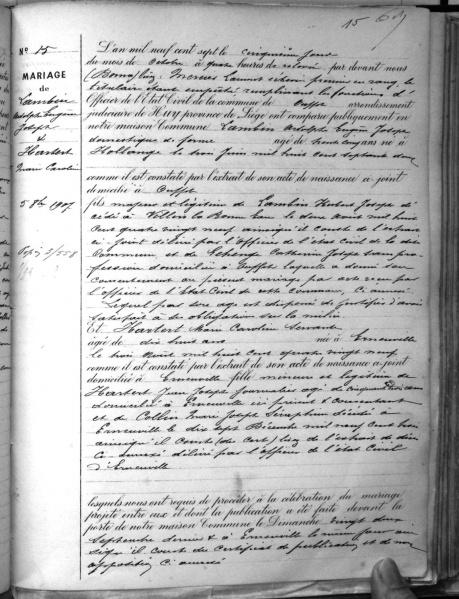 15
N° 15
MARIAGE
de
Lambin
Adolphe Eugène
Joseph
et
Harbert
Marie Caroline
5 8bre 1907.
L'an mil neuf cent sept le cinquième jour
du mois de Octobre à quatre heures de relevée par devant nous
échevin premier en rang le
titulaire étant empêché remplissant les fonctions d'
Officier de l'Etat Civil de la commune de Ouffet arrondissement
judiciaire de Huy province de Liège ont comparu publiquement en
notre maison Commune Lambin Adolphe Eugène Joseph
domestique de ferme âgé de trente cinq ans né à
le trois Juin mil huit cent septante deux
comme il est constaté par l'extrait de son acte de naissance ci-joint
domicilié à Ouffet
fils majeur et légitime de Lambin Hubert Joseph dé-
cédé à Villers le Bonne Eau le deux Avril mil huit
cent quatre vingt neuf ainsi qu'il conste de l'extrait
ci-joint délivré par l'Officier de l'état civil de la dite
Commune, et de Catherine Joseph sans pro-
fession domiciliée à Ouffet laquelle a donné son
consentement au présent mariage par acte reçu par
l'officier de l'Etat Civil de cette commune ci annexé
Lequel par son âge est dispensé de justifier d'avoir
satisfait à ses obligations sur la milice
Et Harbert Marie Caroline Servante
âgée de dix huit ans née à Erneuville
le trois Avril mil huit cent quatre vingt neuf
comme il est constaté par l'extrait de son acte de naissance ci-joint
domiciliée à Erneuville fille mineure et légitime de
Harbert Jean Joseph journalier âgé de cinquante ans
domicilié à Erneuville ici présent et consentant
et de Collin Marie Joseph Séraphine décédée à
Erneuville le dix sept Décembre mil neuf cent
ainsi qu'il conste de l'extrait de décès
ci-annexé délivré par l'officier de l'état Civil
d'Erneuville
lesquels nous ont requis de procéder à la célébration du mariage
projeté entre eux et dont la publication a été faite devant la
porte de notre maison Commune le Dimanche vingt deux
Septembre dernier & à Erneuville le même jour ain-
si qu'il conste du certificat de publication et de non
opposition ci annexé